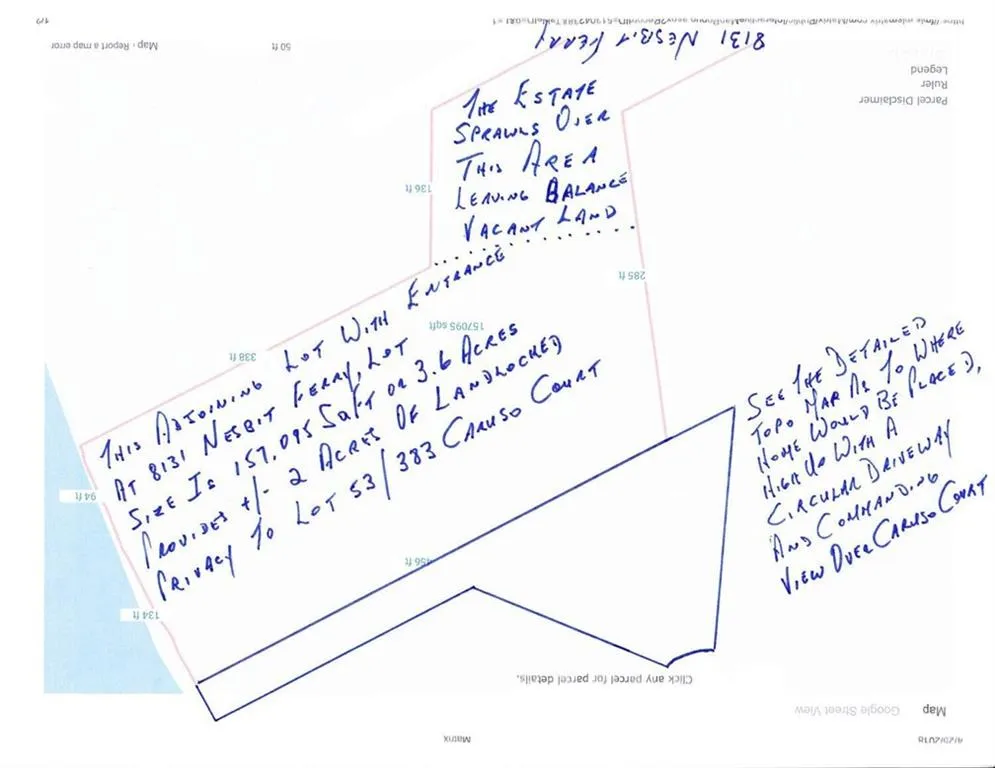 8131 NESBIT FERRY
THE ESTATE
SPRAWLS OVER
THIS AREA
LEAVING BALANCE
VACANT LAND
THIS ADJOINING LOT WITH ENTRANCE
AT 8131 NESBIT FERRY, LOT
SIZE IS 157,095 SQFT OR 3.6 ACRES
PROVIDES +/- 2 ACRES OF LANDLOCKED
PRIVACY TO LOT 53/383 CARUSO COURT
SEE THE DETAILED
TOPO MAP AS TO WHERE
HOME WOULD BE PLACED,
HIGH UP WITH A
CIRCULAR DRIVEWAY
AND COMMANDING
VIEW OVER CARUSO COURT
Matrix
Map
Google Street View
Click any parcel for parcel details.
134 ft
456 ft
94 ft
338 ft
157095 sqft
285 ft
136 ft
Parcel Disclaimer
Ruler
Legend
50 ft
Map - Report a map error